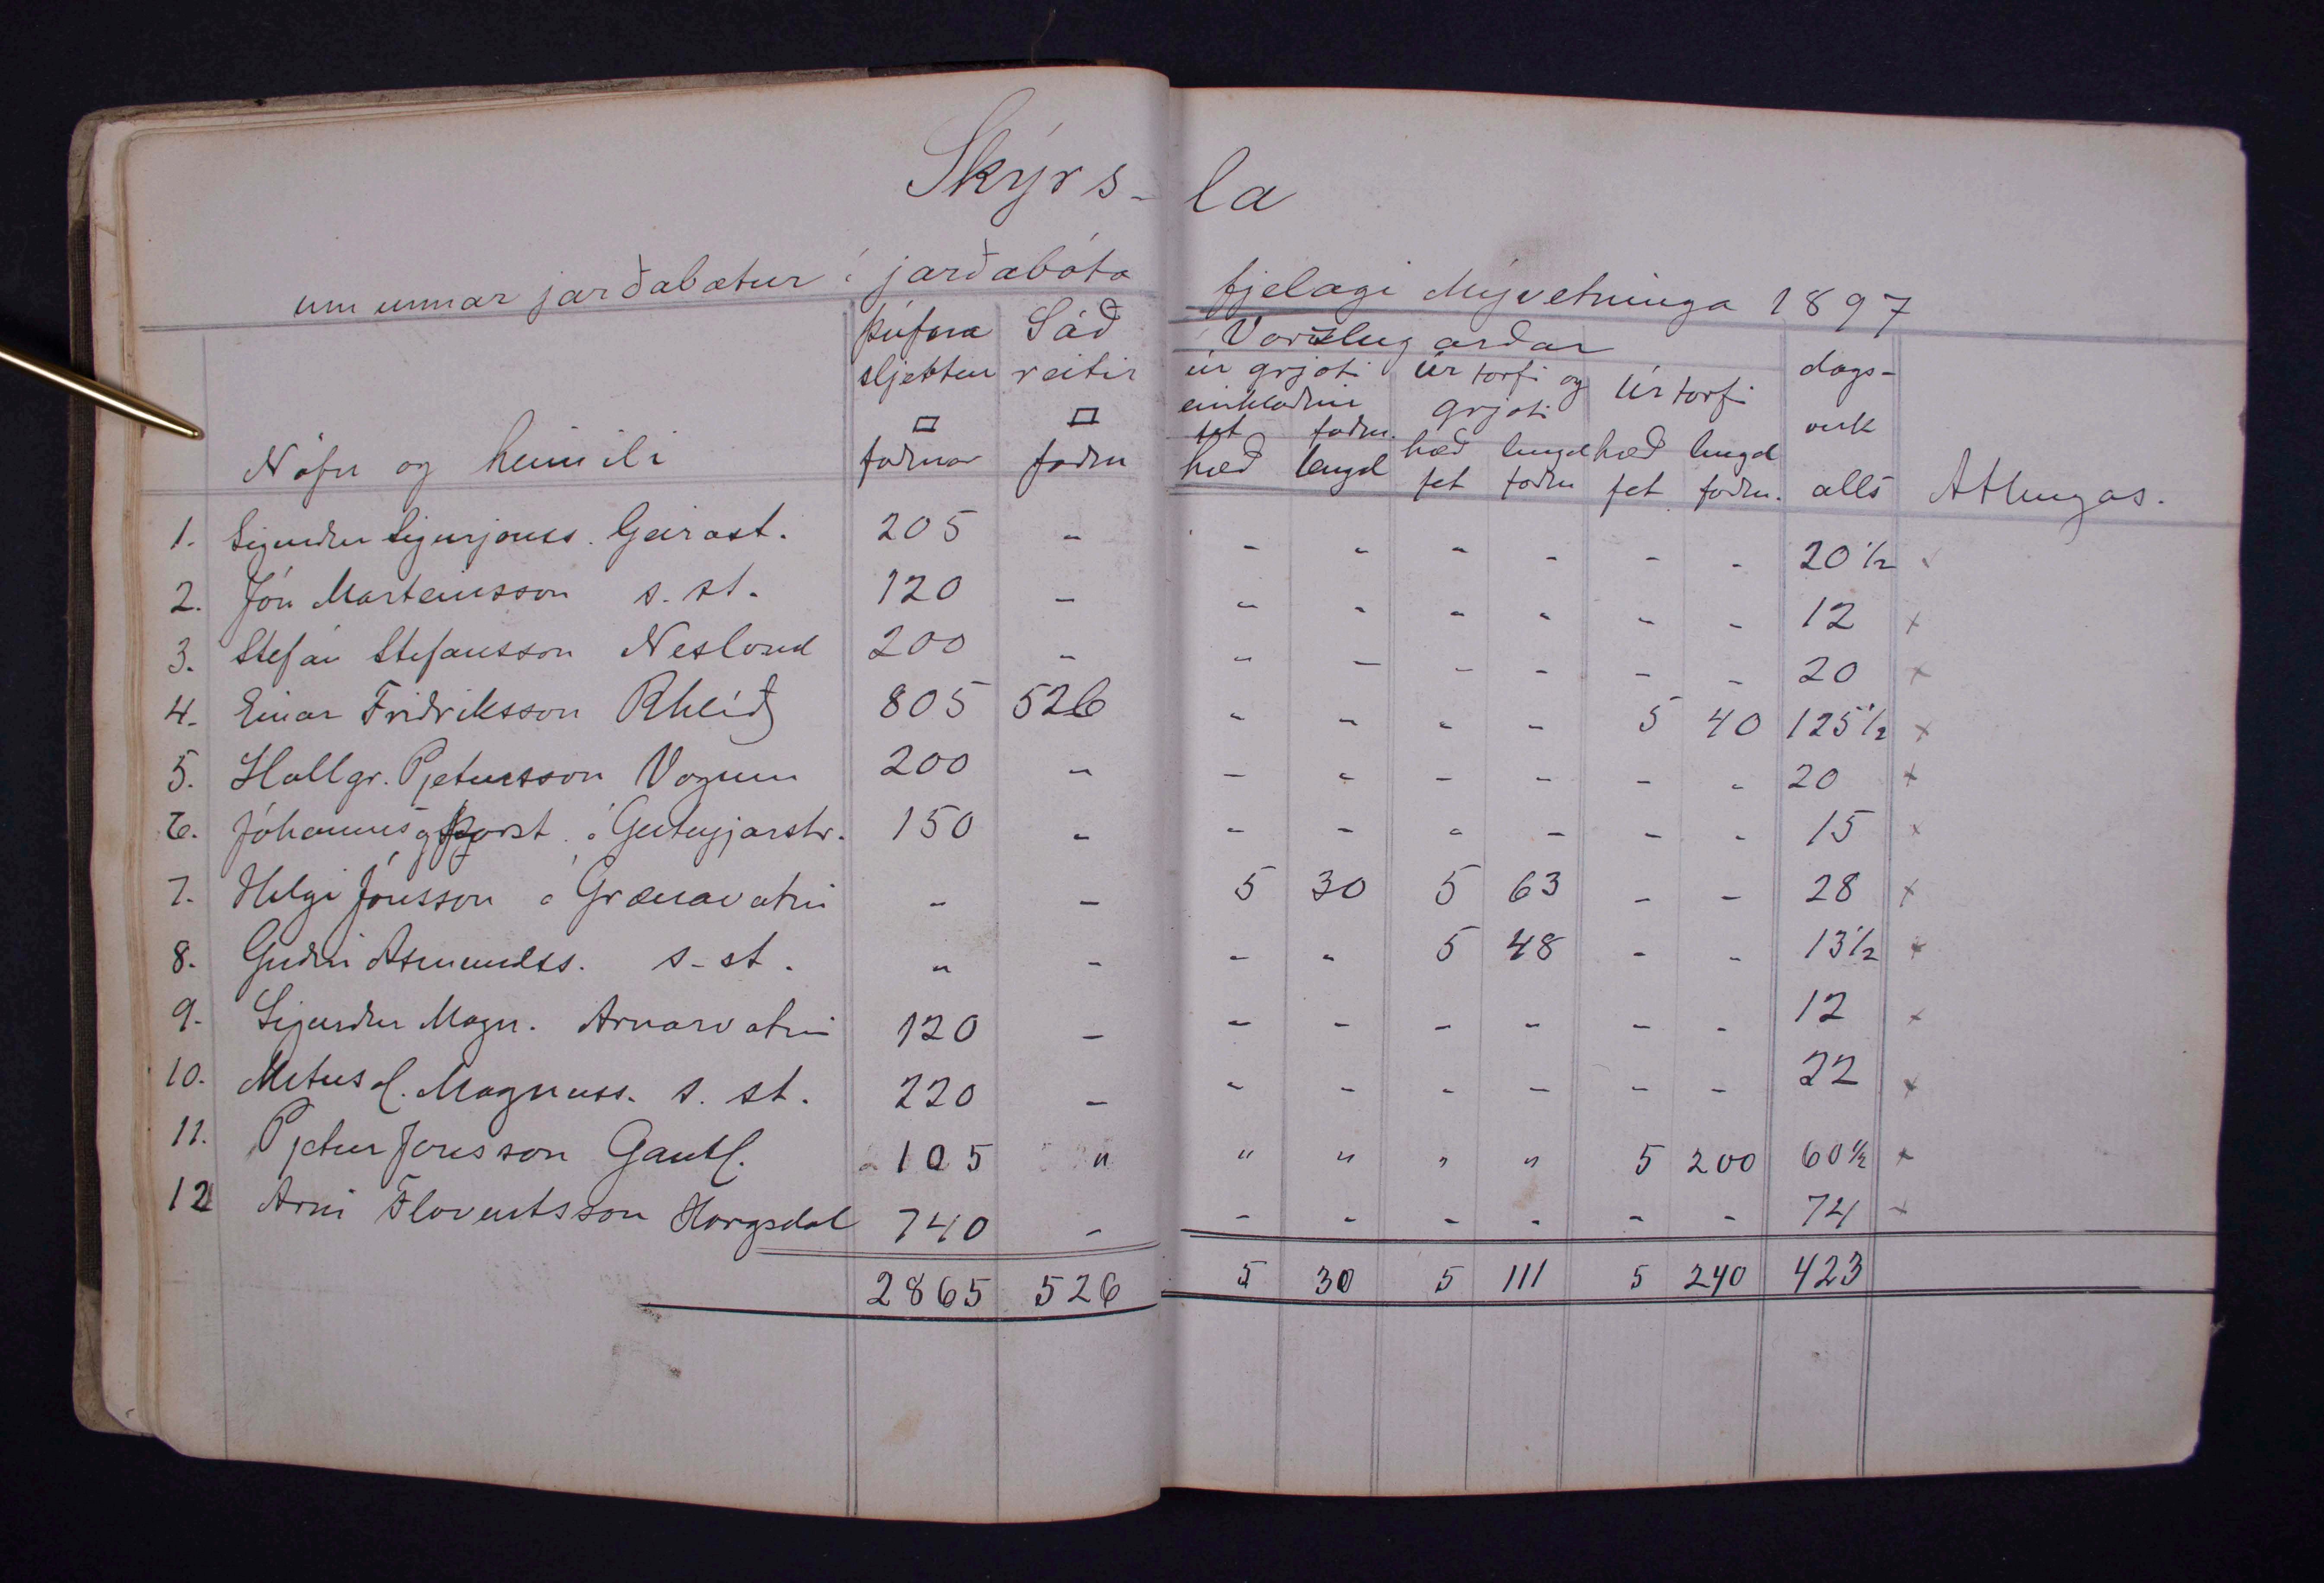 Skýrs-la
um unnar jarðabætur í jarðabóta fjelagi Mývetninga 1897
Nöfn og heimili | Þúfna sljettur □ faðmar | Sáð reitir □ faðm | Vörzlugarðar | dags-verk alls | Athugas.
úr grjoti einhlaðnir | Úr torfi og grjoti | Úr torfi
fet hæð | faðm. lengd | hæð fet | lengd faðm | hæð fet | lengd faðm.
1. Sigurður Sigurjónss. Geirast. 205 - - - - - - - 20 1/2
2. Jón Marteinsson s. st. 120 - - - - - - - 12 x
3. Stefán Stefansson Neslönd 200 - - - - - - - 20 x
4. Einar Friðriksson Rhlíð 805 526 - - - - 5 40 125 1/2 x
5. Hallgr. Pjetursson Vogum 200 - - - - - - - 20 x
6. Jóhannes og Þorst. á Geiteyjarstr. 150 - - - - - - - 15 x
7. Helgi Jónsson á Grænavatni - - 5 30 5 63 - - 28 x
8. Guðni Asmundss. s-st. - - - - 5 48 - - 13 1/2 x
9. Sigurður Magn. Arnarvatni 120 - - - - - - - 12 x
10. Metúsl. Magnuss. s. st. 220 - - - - - - - 22 x
11. Pjetur Jónsson Gautl. 105 " " " " " 5 200 60 1/2 x
12 Arni Floventsson Horgsdal 740 - - - - - - - 74 x
2865 526 5 30 5 111 5 240 423